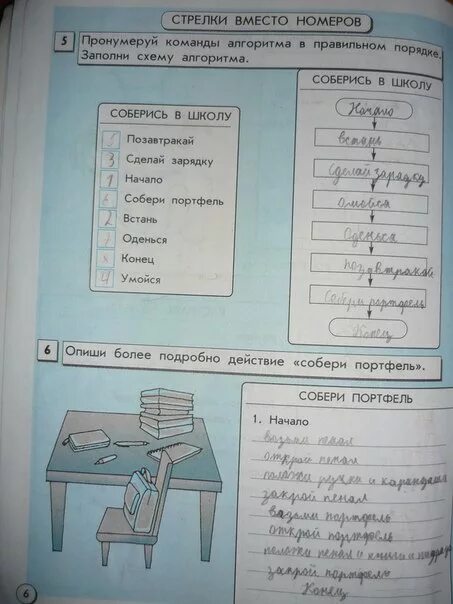 СТРЕЛКИ ВМЕСТО НОМЕРОВ
5 Пронумеруй команды алгоритма в правильном порядке.
Заполни схему алгоритма.
СОБЕРИСЬ В ШКОЛУ
5 Позавтракай
3 Сделай зарядку
1 Начало
6 Собери портфель
2 Встань
Оденься
8 Конец
4 Умойся
СОБЕРИСЬ В ШКОЛУ
Начало
встань
Сделай зарядку
Умойся
Оденься
позавтракай
Собери портфель
Конец
6 Опиши более подробно действие «собери портфель».
СОБЕРИ ПОРТФЕЛЬ
1. Начало
возьми пенал
открой пенал
положи ручки и карандаши
закрой пенал
возьми портфель
открой портфель
положи пенал и книги и
закрой портфель
Конец
6